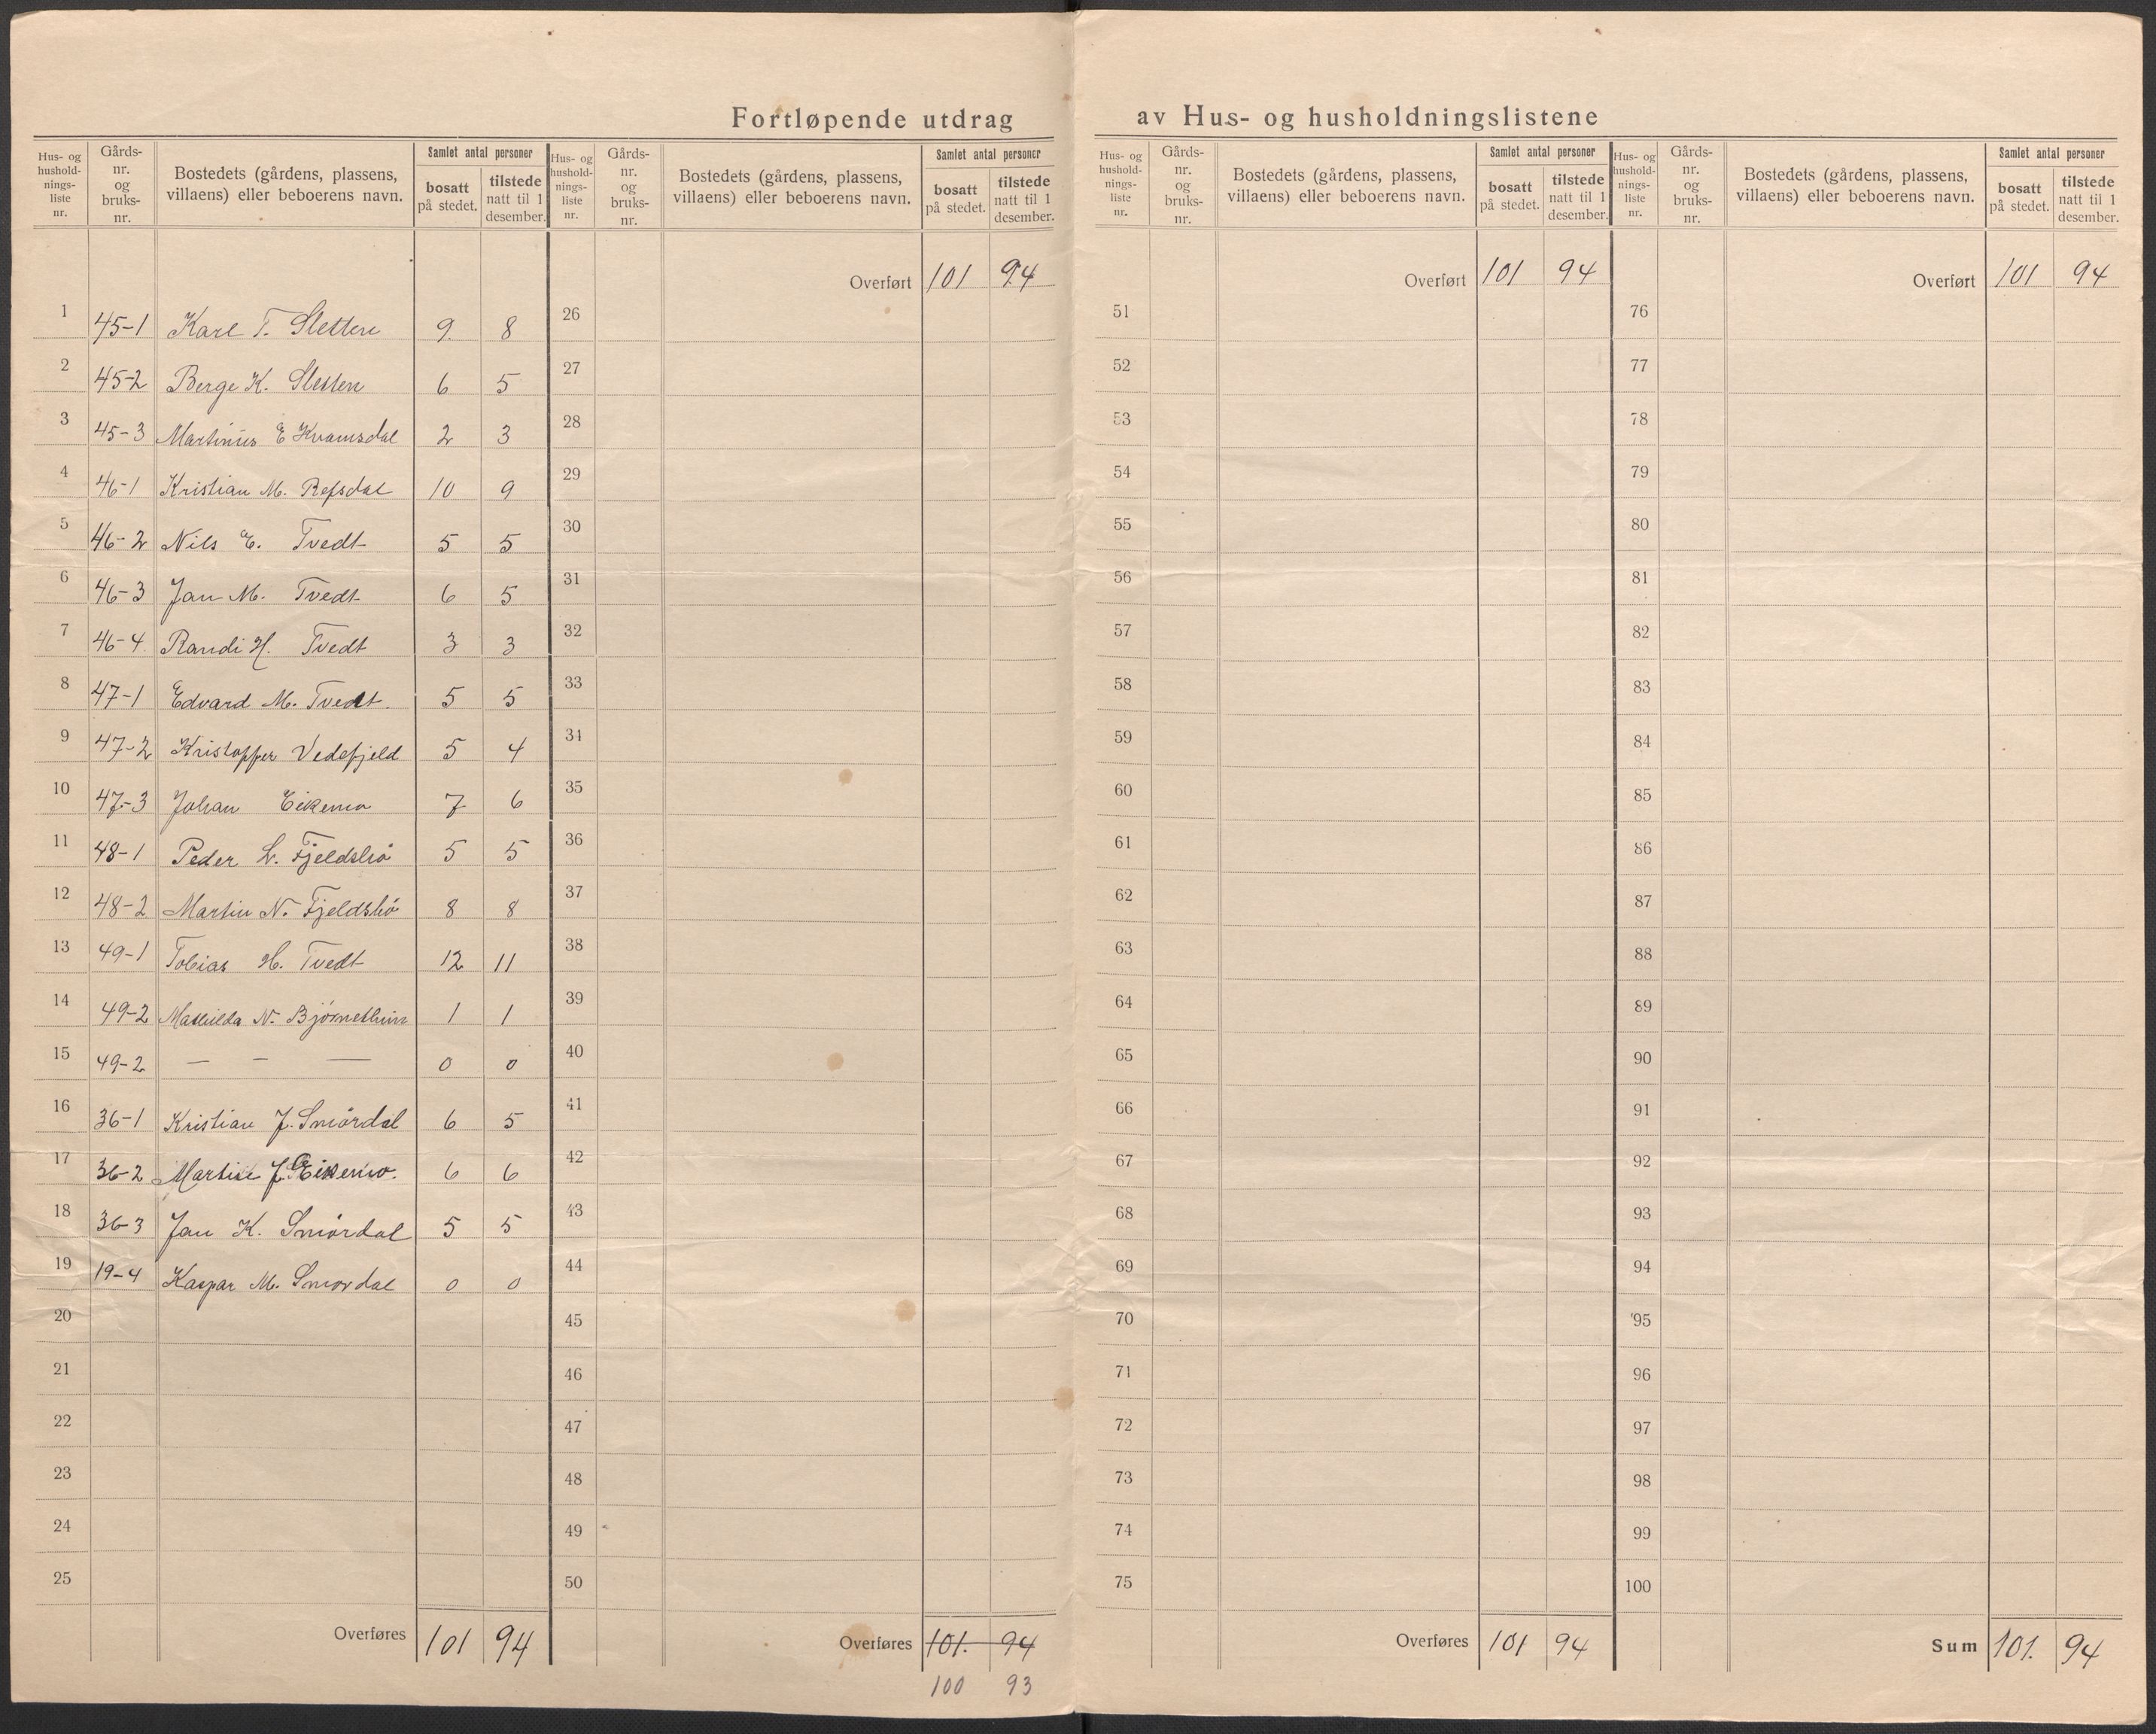 Fortløpende utdrag av Hus- og husholdningslistene
Hus- og hushold-nings-liste nr. Gårds-nr. og bruks-nr. Bostedets (gårdens, plassens, villaens) eller beboerens navn. Samlet antal personer bosatt på stedet. tilstede natt til 1 desember.
1 45-1 Karl T. Sletten 9 8
2 45-2 Berge K. Sletten 6 5
3 45-3 Martinus E Kvamsdal 2 3
4 46-1 Kristian M. Refsdal 10 9
5 46-2 Nils E. Tvedt 5 5
6 46-3 Jan M. Tvedt 6 5
7 46-4 Randi H. Tvedt 3 3
8 47-1 Edvard M. Tvedt. 5 5
9 47-2 Kristoffer Vedefjeld 5 4
10 47-3 Johan Eikemo 7 6
11 48-1 Peder L. Fjeldsbø 5 5
12 48-2 Martin N. Fjeldsbø 8 8
13 49-1 Tobias H. Tvedt 12 11
14 49-2 Mathilda N. 1 1
15 49-2 — – — 0 0
16 36-1 Kristian J. Smørdal 6 5
17 36-2 J. Eikemo. 6 6
18 36-3 Jan K. Smørdal 5 5
19 19-4 Kaspar M. Smørdal 0 0
20
21
22
23
24
25
Overføres 101 94
Hus- og hushold-nings-liste nr. Gårds-nr. og bruks-nr. Bostedets (gårdens, plassens, villaens) eller beboerens navn. Samlet antal personer bosatt på stedet. tilstede natt til 1 desember.
Overført 101 94
26
27
28
29
30
31
32
33
34
35
36
37
38
39
40
41
42
43
44
45
46
47
48
49
50
Overføres 101. 94
100 93
Hus- og hushold-nings-liste nr. Gårds-nr. og bruks-nr. Bostedets (gårdens, plassens, villaens) eller beboerens navn. Samlet antal personer bosatt på stedet. tilstede natt til 1 desember.
Overført 101 94
51
52
53
54
55
56
57
58
59
60
61
62
63
64
65
66
67
68
69
70
71
72
73
74
75
Overføres 101 94
Hus- og hushold-nings-liste nr. Gårds-nr. og bruks-nr. Bostedets (gårdens, plassens, villaens) eller beboerens navn. Samlet antal personer bosatt på stedet. tilstede natt til 1 desember.
Overført 101 94
76
77
78
79
80
81
82
83
84
85
86
87
88
89
90
91
92
93
94
95
96
97
98
99
100
Sum 101. 94